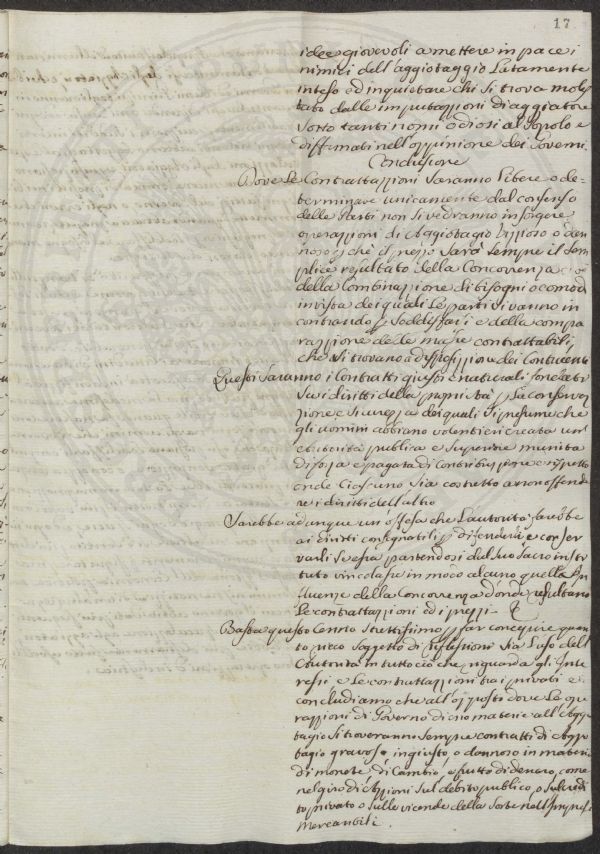 17
idee giovevoli a mettere in pace i
nimici dell'aggiotaggio Latamente
inteso ed inquietare chi si trova mole
stato dalle imputazzioni di aggiatore
sotto tanti nomi odiosi al Popolo e
diffamati nell'oppinione dei Governi.
Conclusione
Dove Le Contrattazzioni saranno libere o de=
terminate unicamente dal consenso
delle Parti non si vedranno insorgere
operazzioni di Aggiotagio vizzioso o dan
noso p che il prezzo sarà sempre il sem
plice resultato della Concorrenza cioe
della Combinazzione di bisogni o comodi
in vista dei quali Le parti si vanno in
contrando p soddisfarsi e della compa
razzione delle masse contrattabili
che si trovano a disposizzione dei Contraenti
Questi saranno i Contratti giusti e naturali fondati
su i diritti della proprietà p La conserva
zione e sicurezza dei quali si presume che
gli uomini abbiano volentieri creata un'
Autorità publica e Superiore munita
di forza e pagata di Contribuzzione e rispetto
onde Ciascuno sia costretto a non offende
re i diritti dell'altro
Sarebbe adunque un offesa che L'autorità farebbe
ai diritti consegnatili p difenderli e conser
varli se essa partendosi dal suo sacro insti
tuto vincolasse in modo alcuno quella In
fluenza della Concorrenza d'onde resultano
Le contrattazzioni ed i prezzi.
Basta questo Cenno p far concepire quan
to ricco Soggetto di Riflessioni sia L'uso dell'
Autorità in tutto ciò che riguarda gli Inte
ressi e Le contrattazzioni tra i privati e
concludiamo che all'opposto dove Le ope
razzioni di Governo
tagio si troveranno sempre contratti di Aggio
tagio gravoso ingiusto o dannoso in materia
di monete, di Cambio, e frutto di denaro, come
nel giro di Azzioni sul debito publico, o sul credi
to privato o sulle vicende della Sorte nell'Imprese
Mercantili.